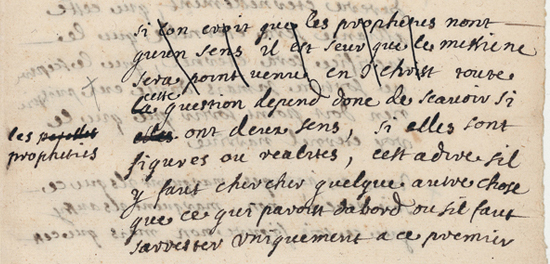 si lon croit que les propheties nont
qu'un sens il est seur que le messie ne
sera point venu en J christ toute
cette
la question depend donc de scavoir si
les propheties
elles ont deux sens, si elles sont
figures ou realites, cest adire sil
y faut chercher quelque autre chose
que ce qui paroist dabord ou sil faut
sarrester uniquement a ce premier